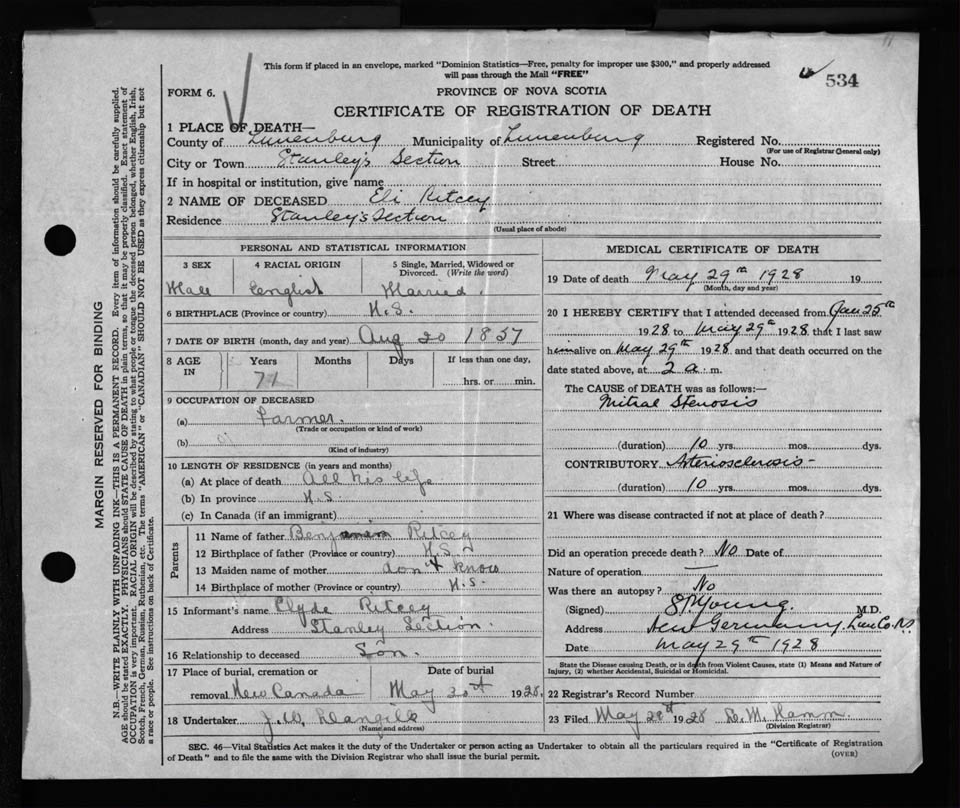 11
This form if placed in an envelope, marked "Dominion Statistics—Free, penalty for improper use $300," and properly addressed
will pass through the Mail "FREE"
534
FORM 6.
PROVINCE OF NOVA SCOTIA
CERTIFICATE OF REGISTRATION OF DEATH
1 PLACE OF DEATH—
County of Lunenburg Municipality of Lunenburg Registered No.
(For use of Registrar General only)
City or Town Stanley's Section Street House No.
If in hospital or institution, give name
2 NAME OF DECEASED Eli Ritcey
Residence Stanley's Section
(Usual place of abode)
PERSONAL AND STATISTICAL INFORMATION
3 SEX 4 RACIAL ORIGIN 5 Single, Married, Widowed or
Divorced. (Write the word)
Male English Married.
6 BIRTHPLACE (Province or country) N.S.
7 DATE OF BIRTH (month, day and year) Aug 20 1857
8 AGE IN Years Months Days If less than one day,
71 hrs. or min.
9 OCCUPATION OF DECEASED
(a) Farmer.
(Trade or occupation or kind of work)
(b)
(Kind of industry)
10 LENGTH OF RESIDENCE (in years and months)
(a) At place of death All his life
(b) In province N.S.
(c) In Canada (if an immigrant)
Parents
11 Name of father Benjamin Ritcey
12 Birthplace of father (Province or country) N.S.
13 Maiden name of mother don't know
14 Birthplace of mother (Province or country) N.S.
15 Informant's name Clyde Ritcey
Address Stanley Section.
16 Relationship to deceased Son.
17 Place of burial, cremation or Date of burial
removal New Canada May 30th 1928.
18 Undertaker J.W.
(Name and address)
MEDICAL CERTIFICATE OF DEATH
19 Date of death May 29th 1928 19
(Month, day and year)
20 I HEREBY CERTIFY that I attended deceased from Jan 25th
1928 to May 29th 1928 that I last saw
him alive on May 29th 1928 and that death occurred on the
date stated above, at 2 a. m.
The CAUSE of DEATH was as follows:—
Mitral Stenosis
(duration) 10 yrs. mos. dys.
CONTRIBUTORY Arteriosclerosis
(duration) 10 yrs. mos. dys.
21 Where was disease contracted if not at place of death?
Did an operation precede death? No Date of
Nature of operation —
Was there an autopsy? No
(Signed) Young. M.D.
Address New Germany, Lun Co. N.S.
Date May 29th 1928
State the Disease causing Death, or in death from Violent Causes, state (1) Means and Nature of
Injury, (2) whether Accidental, Suicidal or Homicidal.
22 Registrar's Record Number
23 Filed May 29th 1928
(Division Registrar)
SEC. 46—Vital Statistics Act makes it the duty of the Undertaker or person acting as Undertaker to obtain all the particulars required in the "Certificate of Registration
of Death" and to file the same with the Division Registrar who shall issue the burial permit.
(OVER)
MARGIN RESERVED FOR BINDING
N.B.—WRITE PLAINLY WITH UNFADING INK—THIS IS A PERMANENT RECORD. Every item of information should be carefully supplied.
AGE should be stated EXACTLY. PHYSICIANS should STATE CAUSE OF DEATH in plain terms, so that it may be properly classified. Exact statement of
OCCUPATION is very important. RACIAL ORIGIN will be described by stating to what people or tongue the deceased person belonged, whether English, Irish,
Scotch, French, German, Russian, Ruthenian, etc. The terms "AMERICAN" or "CANADIAN" SHOULD NOT BE USED as they express citizenship but not
a race or people. See instructions on back of Certificate.